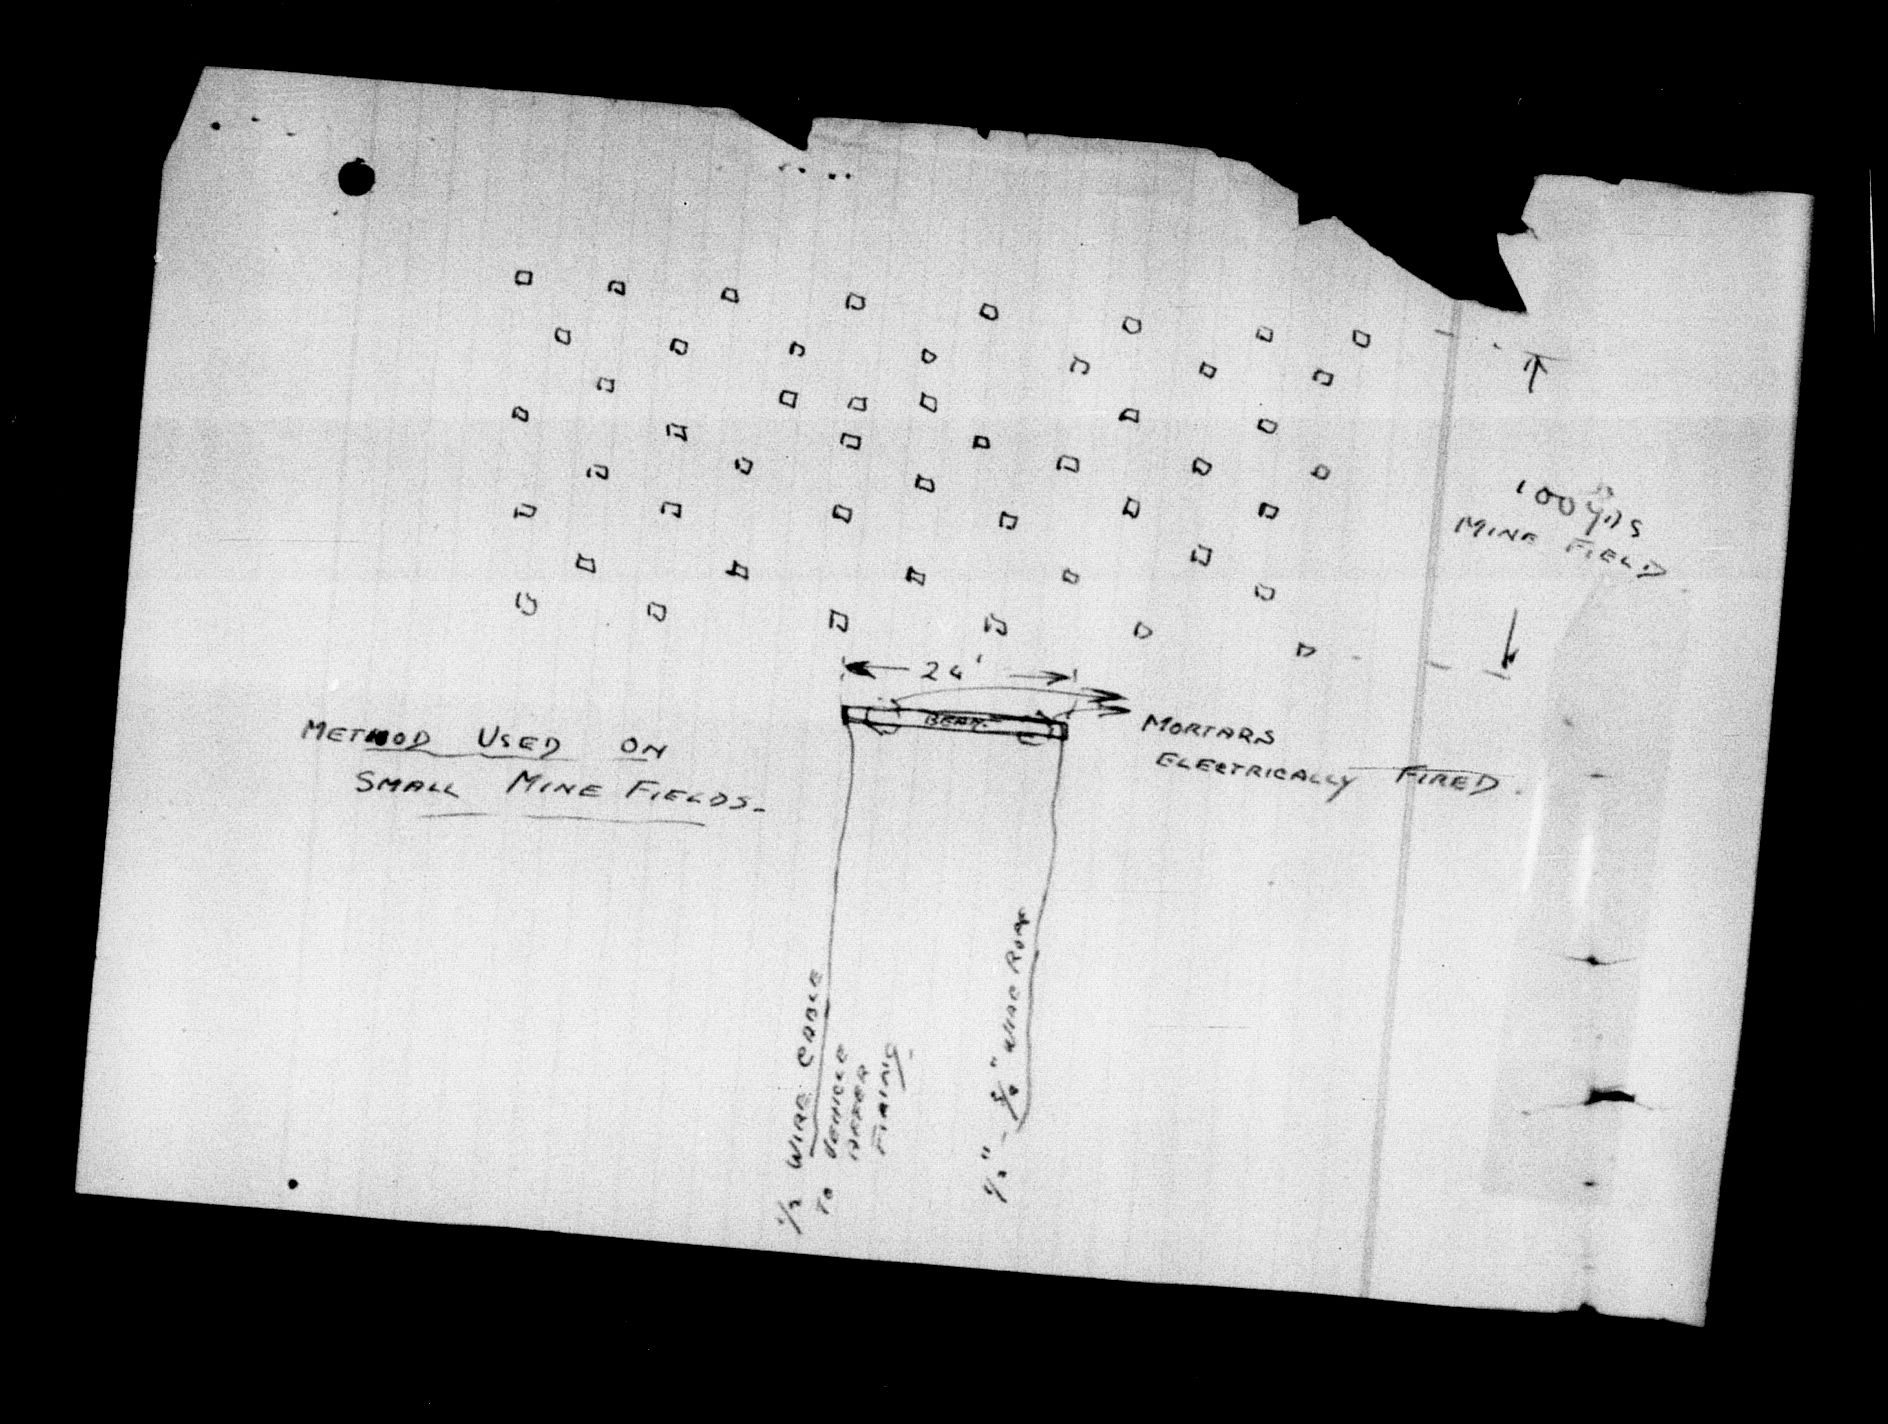 100 YDS
MINE FIELD
24'
BEAM
MORTARS
ELECTRICALLY FIRED.
METHOD USED ON
SMALL MINE FIELDS.
1/2 WIRE CABLE
TO VEHICLE
AFTER
FIRING
1/2" - 5/8" WIRE ROPE